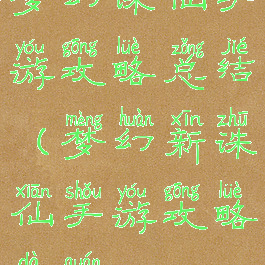 梦幻诛仙手
yóu gōng lüè zǒng jié
游攻略总结
mèng huàn xīn zhū
(梦幻新诛
xiān shǒu yóu gōng lüè
仙手游攻略
dà quán